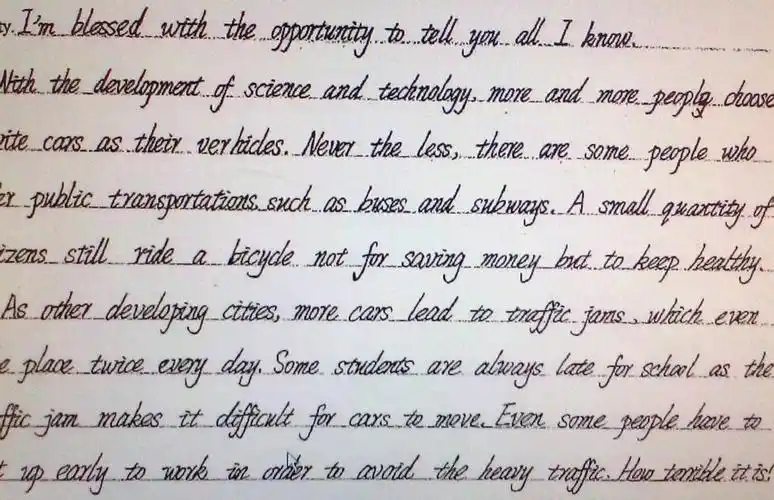 ty. I'm blessed with the opportunity to tell you all I know.
With the development of science and technology, more and more people choose
vite cars as their verhicles. Never the less, there are some people who
er public transportations such as buses and subways. A small quantity of
izens still ride a bicycle not for saving money but to keep healthy.
As other developing cities, more cars lead to traffic jams, which even
e place twice every day. Some students are always late for school as the
ffic jam makes it difficult for cars to move. Even some people have to
t up early to work in order to avoid the heavy traffic. How terrible it is!